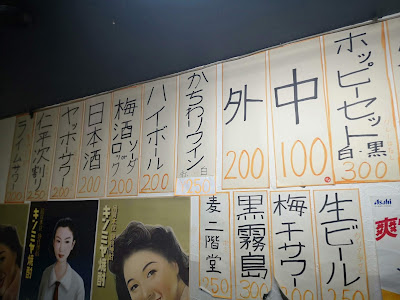 ホッピーセット
白・黒
300
中
100
外
200
かちわりワイン
白
250
ハイボール
200
梅酒
ソーダ
or
ロック
200
日本酒
200
ヤッホーサワー
200
仁平次割り
ライムサワー
生ビール
350
梅干サワー
300
黒霧島
300
麦二階堂
250
キンミヤ焼酎
キンミヤ焼酎
Asahi
爽